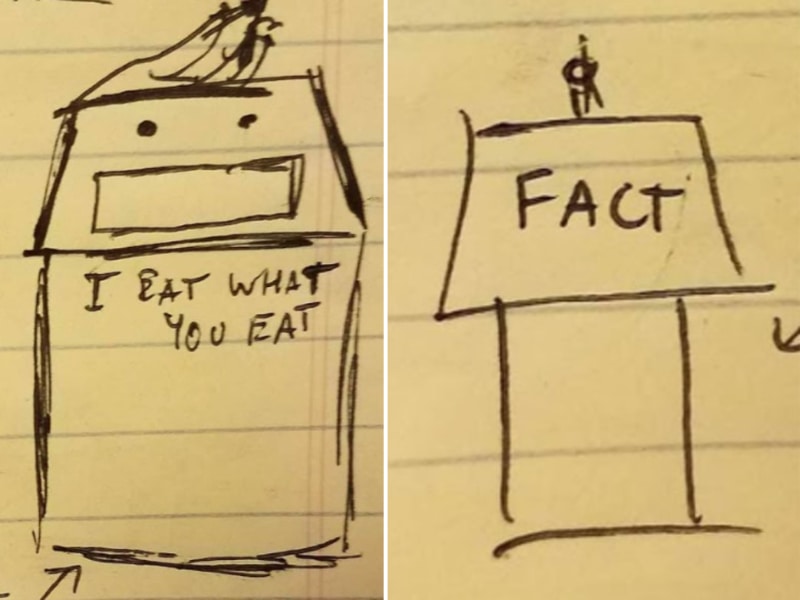 I EAT WHAT
YOU EAT
FACT